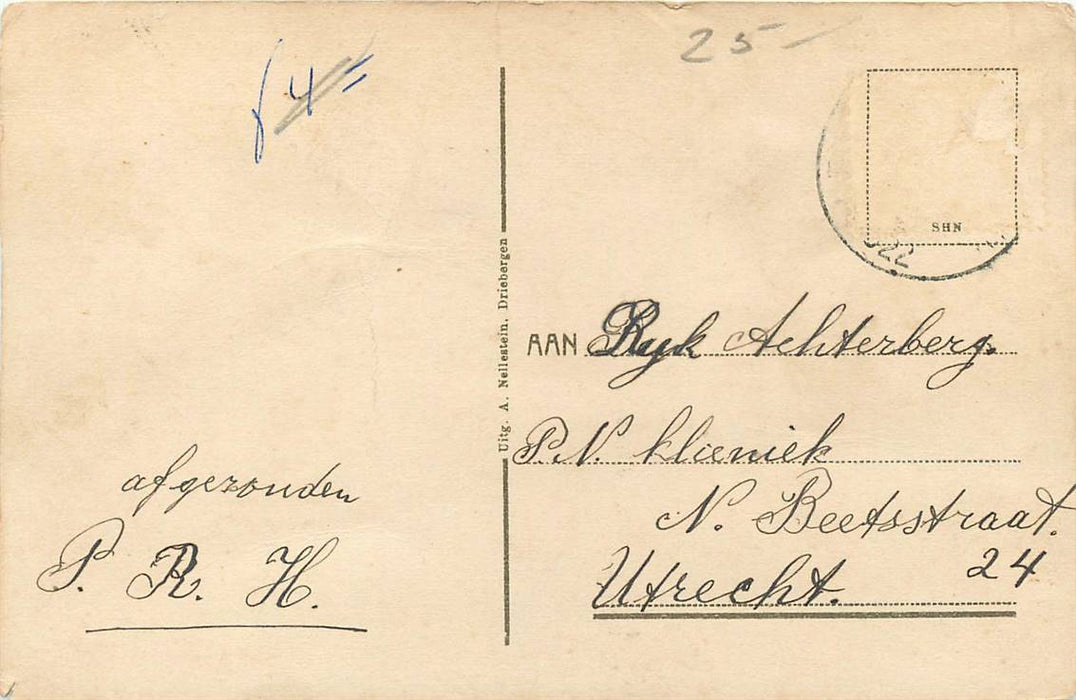 f 4=
25-
SHN
22
Uitg. A. Nellestein, Driebergen
AAN Ryk Achterberg.
P.N. klieniek
N. Beetsstraat.
24
Utrecht.
afgezonden
P. R. H.